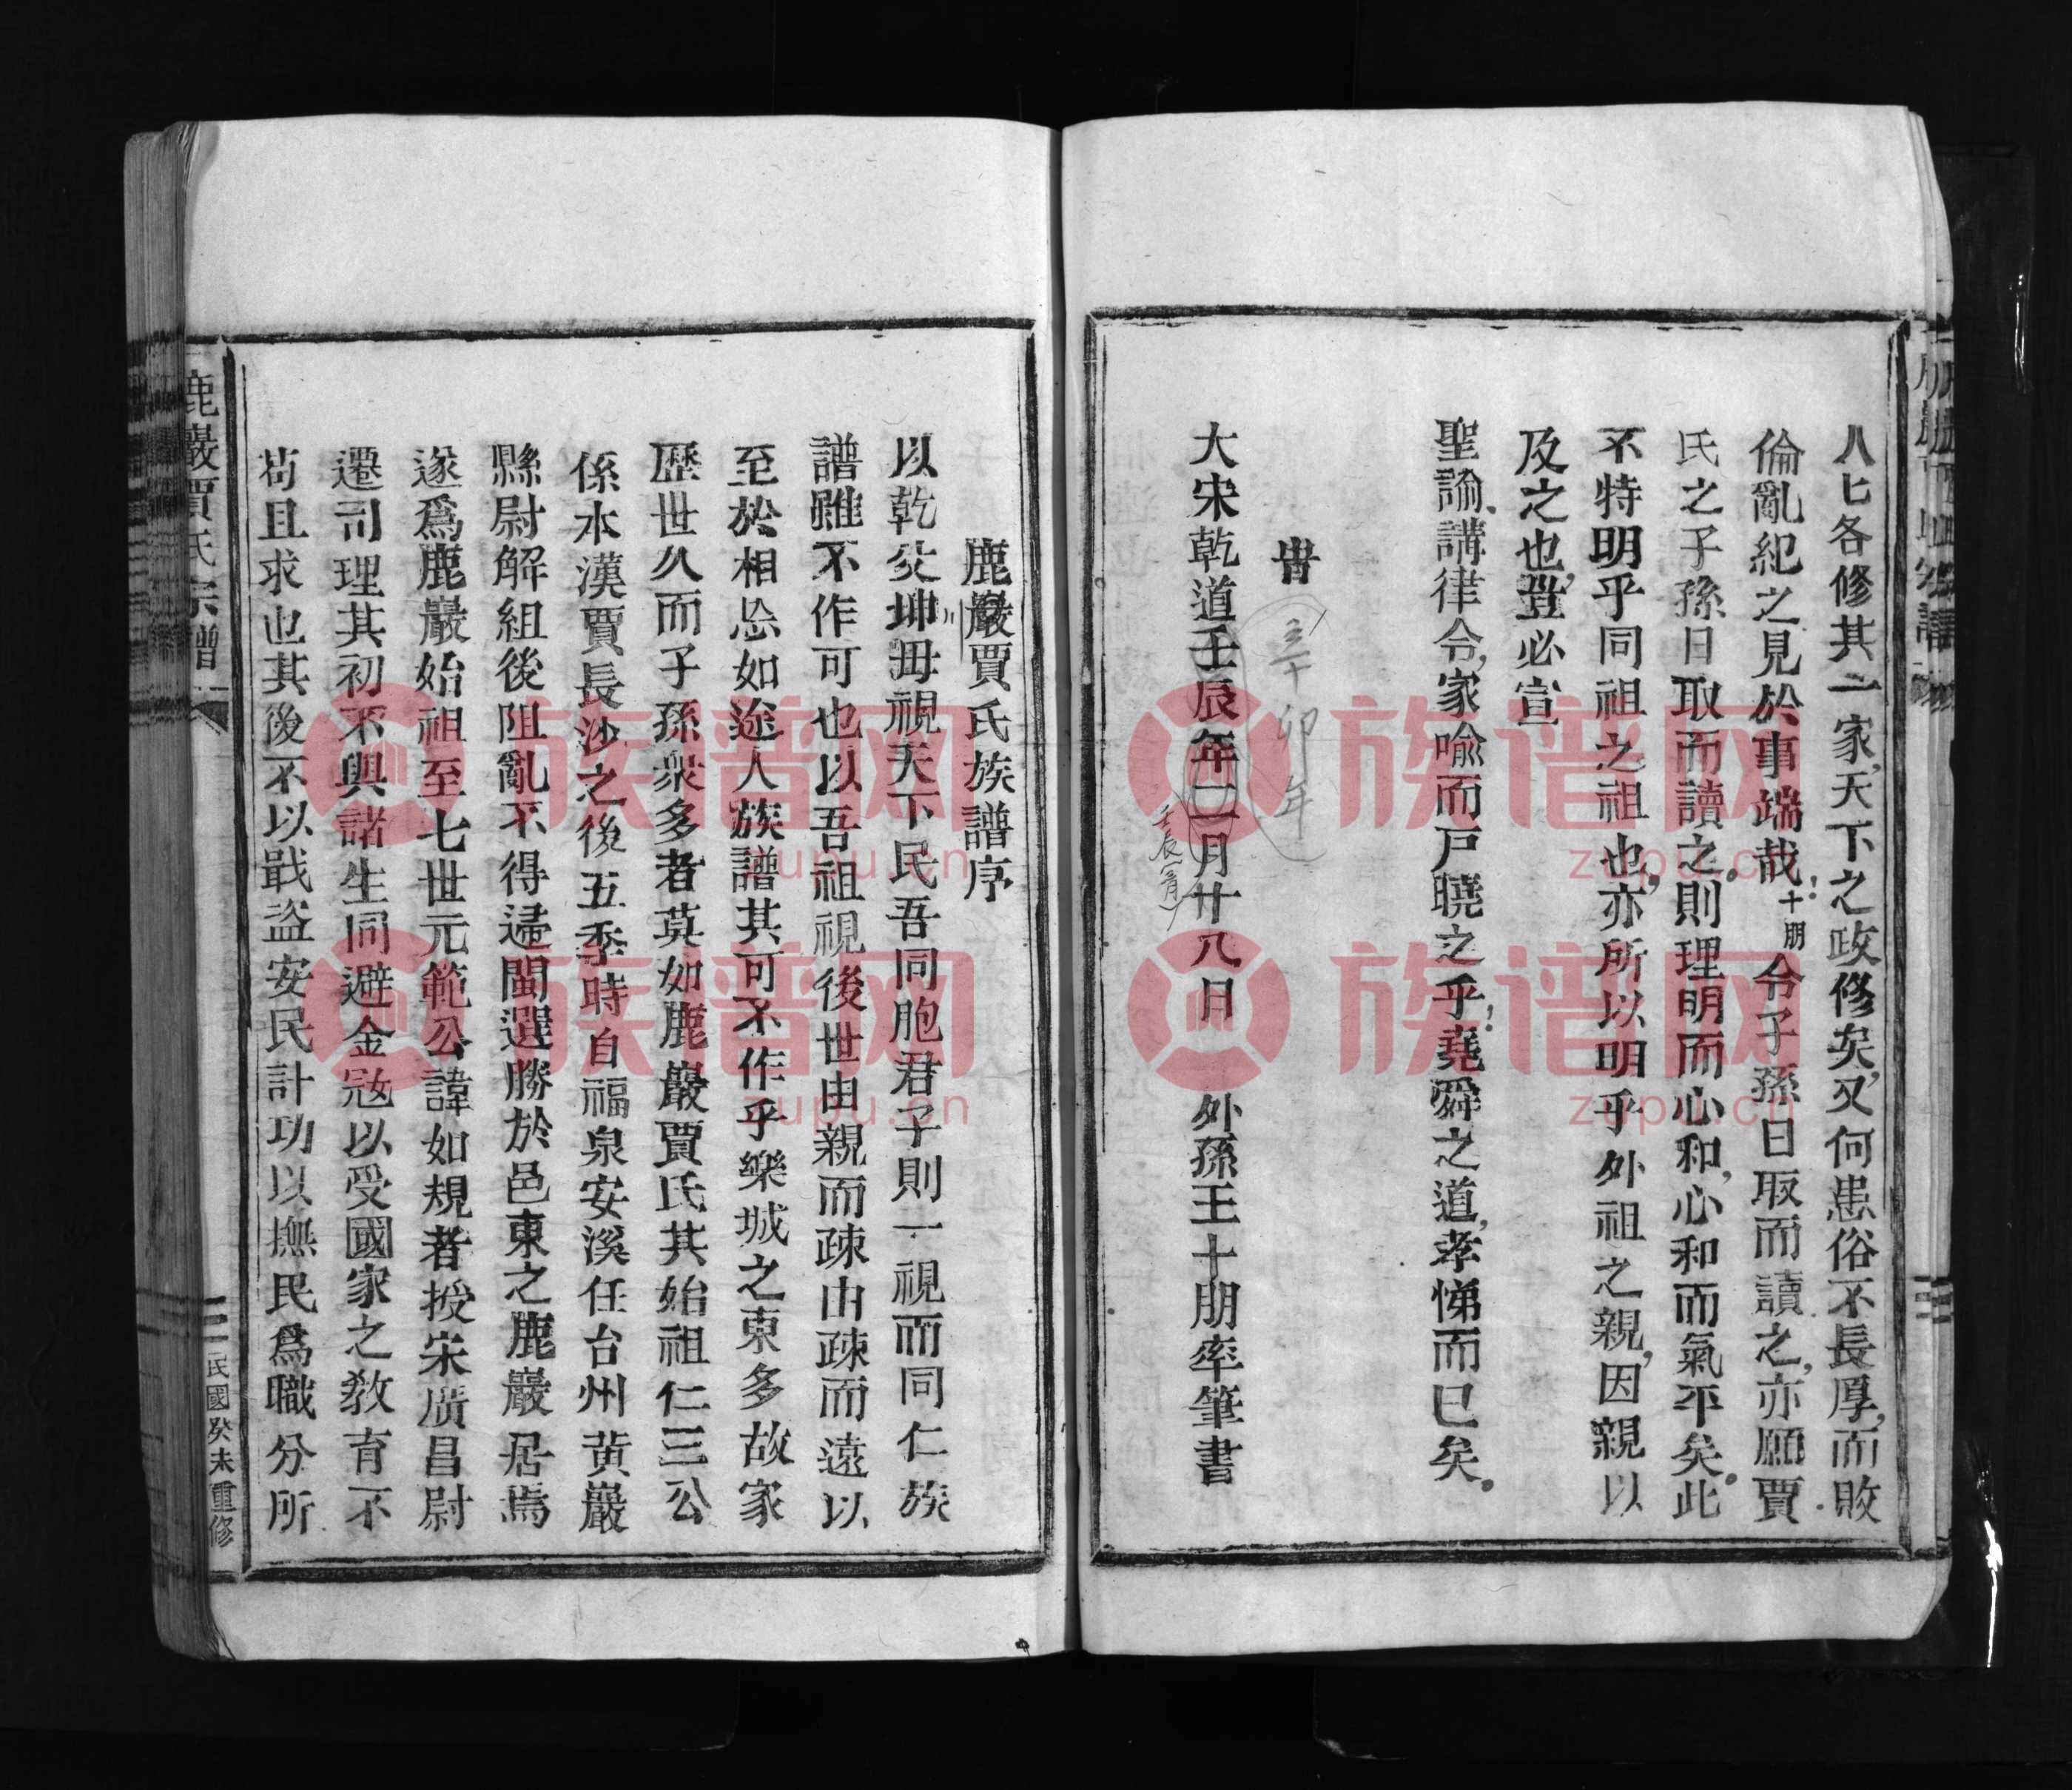 人七各修其一家天下之政修矣又何患俗不長厚而敗
倫亂紀之見於事端哉十朋令子孫日取而讀之亦願賈
氏之子孫日取而讀之則理明而心和心和而氣平矣此
不特明乎同祖之祖也亦所以明乎外祖之親因親以
及之也豈必宣
聖諭講律令家喻而戶曉之乎堯舜之道孝悌而已矣
旹
卯年
大宋乾道壬辰年二月廿八日 外孫王十朋率筆書
壬辰
鹿巖賈氏族譜序
以乾父坤毋視天下民吾同胞君子則一視而同仁族
譜雖不作可也以吾祖視後世由親而疎由疎而遠以
至於相忘如途人族譜其可不作乎樂城之東多故家
歷世久而子孫衆多者莫如鹿巖賈氏其始祖仁三公
係本漢賈長沙之後五季時自福泉安溪任台州黃巖
縣尉解組後阻亂不得歸閩選勝於邑東之鹿巖居焉
遂爲鹿巖始祖至七世元範公諱如規者授宋廣昌尉
遷司理其初不與諸生同避金寇以受國家之教育不
苟且求也其後不以戢盜安民計功以撫民爲職分所
鹿巖賈氏宗譜
民國癸未重修
族谱网
zupu.cn
族谱网
zupu.cn
族谱网
zupu.cn
族谱网
zupu.cn